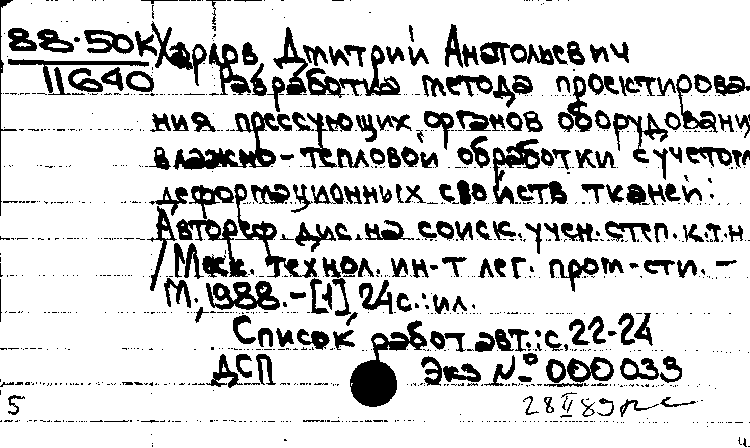 88-50К Харлов, Дмитрий Анатольевич
11640 Разработка метода проектирова-
ния прессующих органов оборудовани
влажно-тепловой обработки с учетом
деформационных свойств тканей:
Автореф. дис. на соиск. учен. степ. к.т.н
/ Моск. технол. ин-т лег. пром-сти. -
М., 1988. - [1], 24 с.: ил.
Список работ авт.: с. 22-24
ДСП Экз № 000033
5 28 II 89